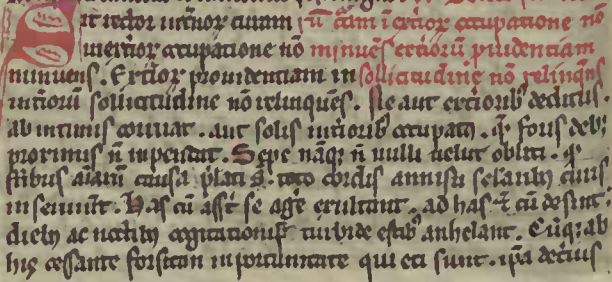 Sit rector int̄noꝝ curam n̄ cām ī ext̄ioꝝ occupatione nō
in ext̄ioꝝ occupatione nō minuēs ext̄iorū prudentiam
minuens. Ext̄ioꝝ prouidentiam in sollicitudinē nō relinqns
int̄iorū sollicitudine nō relinquēs. Ne aut ext̄iorib; deditus.
ab intimis corruat. aut solis int̄iorib; occupatꝰ. q̄ foris deb;
proximis n̄ inpendat. Sepe nāq; n̄ nulli uelut obliti. qđ
fr̄ibus aīarū causa p̄lati s̄. toto cordis annisu sclarib; curis
inseruiūt. Has cū assūt se agē exultant. ad has ⁊ cū desunt.
dieb; ac noctib; cogitationis turbide estib; anhelant. Cūq; ab
his cessante forsitan inportunitate quieti sunt. ip̄a det̄ius